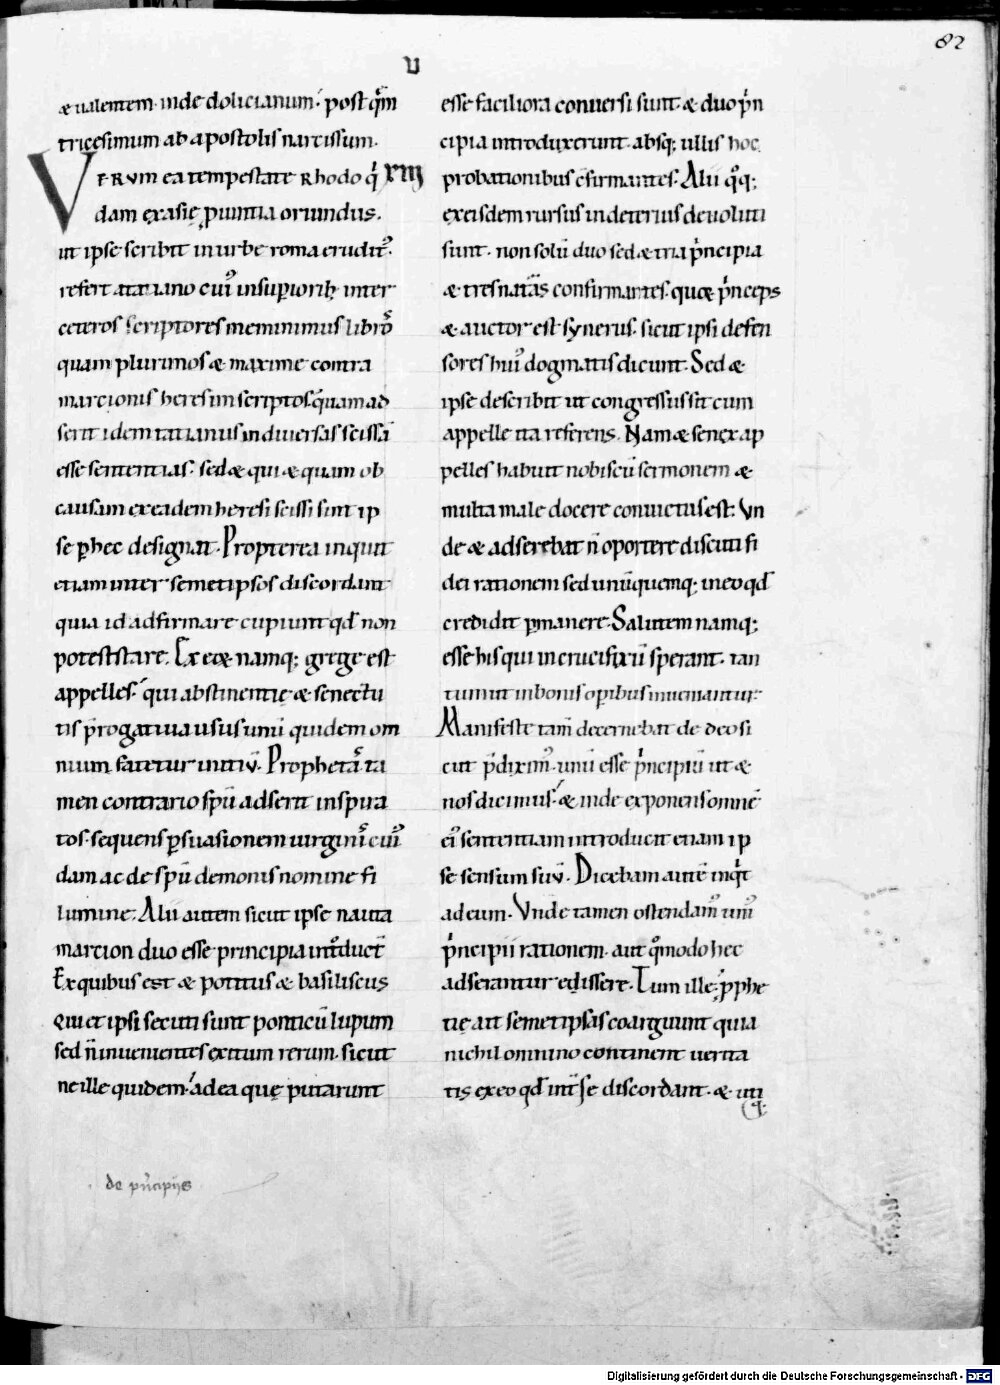 82
V
& ualentem. inde dolicianum. post q̄m
tricesimum ab apostolis narcissum.
VERVM ea tempestate Rhodo qͥ XIII
dam ex asię puintia oriundus.
ut ipse scribit in urbe roma erudit᷒.
refert a tatiano cui᷒ in supioribꝫ inter
ceteros scriptores meminimus libro᷒
quam plurimos & maxime contra
marcionis heresim scriptos. quam ad
serit idem tatianus in diuersas scissā
esse sententias. sed & qui & quam ob
causam ex eadem heresi scissi sint ip
se ꝑ hec designat. Propterea inquit
etiam inter semetipsos discordant
quia id adfirmare cupiunt qđ non
potest stare. Ex eoꝝ namq; grege est
appelles. qui abstinentię & senectu
tis p̄rogatiua usus unū quidem om
nium fatetur initiū. Prophetas ta
men contrario sp̄u adserit inspira
tos. sequens ꝑsuasionem uirginis cui᷒
dam ac de sp̄u demonis nomine fi
lumine. Alii autem sicut ipse nauta
marcion duo esse principia int̄duct̄
Ex quibus est & potitus & basiliscus
Qui et ipsi secuti sunt ponticū lupum
sed n̄ inuenientes exitum rerum. sicut
ne ille quidem. ad ea quę putarunt
esse faciliora conuersi sunt. & duo pͥn
cipia introduxerunt. absq; ullis hoc
probationibus c̄firmantes. Alii qͦq;
ex eisdem rursus in deterius deuoluti
sunt. non solū duo sed & tria pͥncipia
& tres naturas confirmantes. quoꝝ pͥnceps
& auctor est synerus. sicut ipsi defen
sores hui᷒ dogmatis dicunt. Sed &
ipse describit ut congressus sit cum
appelle ita referens. Nam & senex ap
pelles habuit nobiscū sermonem &
multa male docere conuictus est. Vn
de & adserebat n̄ oportere discuti fi
dei rationem sed unūquemq; in eo qđ
credidit ꝑmanere. Salutem namq;
esse his qui in crucifixū sperant. tan
tum ut in bonis oꝑibus inueniantur.
Manifeste tam̄ decernebat de deo si
cut p̄dixim᷒. unū esse pͥncipiū ut &
nos dicimus. & inde exponens omnē
ei᷒ sententiam introducit etiam ip
se sensum suū. Dicebam autē inqͥt
ad eum. Vnde tamen ostendam᷒ uni᷒
pͥncipii rationem. aut qͦmodo hec
adserantur edissere. Tum ille. p̄phe
tię ait semetipsas coarguunt quia
nichil omnino continent uerita
tis ex eo qđ int̄ se discordant. & uti
q;
de pͥncipijs
Digitalisierung gefördert durch die Deutsche Forschungsgemeinschaft - DFG